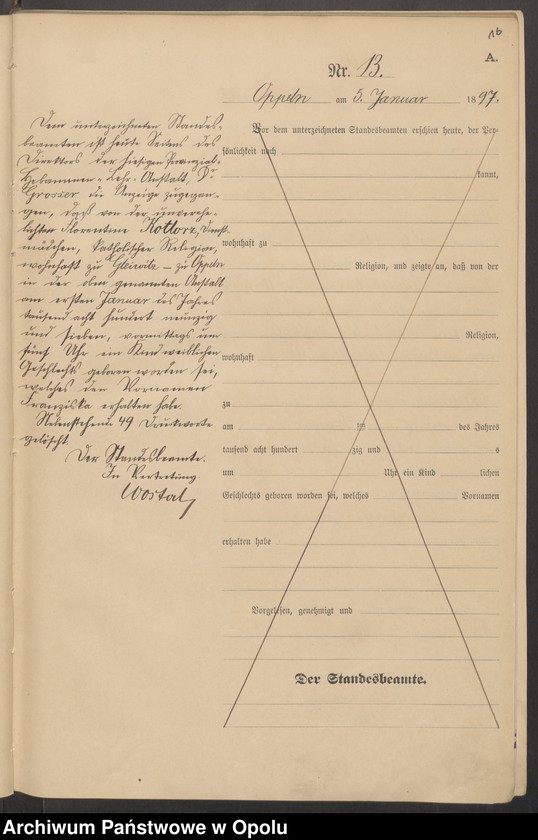 16
A.
Nr. 13.
Oppeln am 5. Januar 1897.
Dem unterzeichneten Standes-
beamten ist heute Seitens des
Direktors der hiesigen Provinzial-
Hebammen-Lehr-Anstalt, Dr
Grosser die Anzeige zugegan-
gen, daß von der unverehe-
lichten Florentine Kotlorz, Dienst-
mädchen, katholischer Religion,
wohnhaft zu Gleiwitz – zu Oppeln
in der oben genannten Anstalt
am ersten Januar des Jahres
tausend acht hundert neunzig
und sieben, vormittags um
fünf Uhr ein Kind weiblichen
Geschlechts geboren worden sei,
welches den Vornamen
Franziska erhalten habe.
Nebenstehende 49 Druckworte
gelöscht.
Der Standesbeamte.
In Vertretung.
Wostal
Vor dem unterzeichneten Standesbeamten erschien heute, der Per-
sönlichkeit nach
kannt,
wohnhaft zu
Religion, und zeigte an, daß von der
Religion,
wohnhaft
zu
am ten des Jahres
tausend acht hundert zig und s
um Uhr ein Kind lichen
Geschlechts geboren worden sei, welches Vornamen
erhalten habe
Vorgelesen, genehmigt und
Der Standesbeamte.
Archiwum Państwowe w Opolu